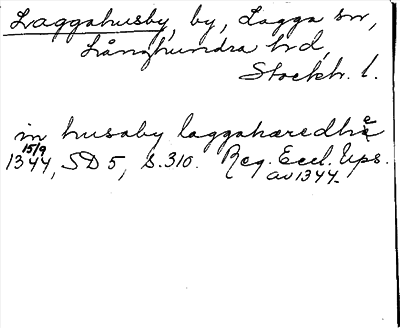 Laggahusby, by, Lagga sn,
Långhundra hd,
Stockh. l.
in husaby laggahæredhe
15/9
1344, SD 5, s. 310. Reg. Eccl. Ups.
av 1344.